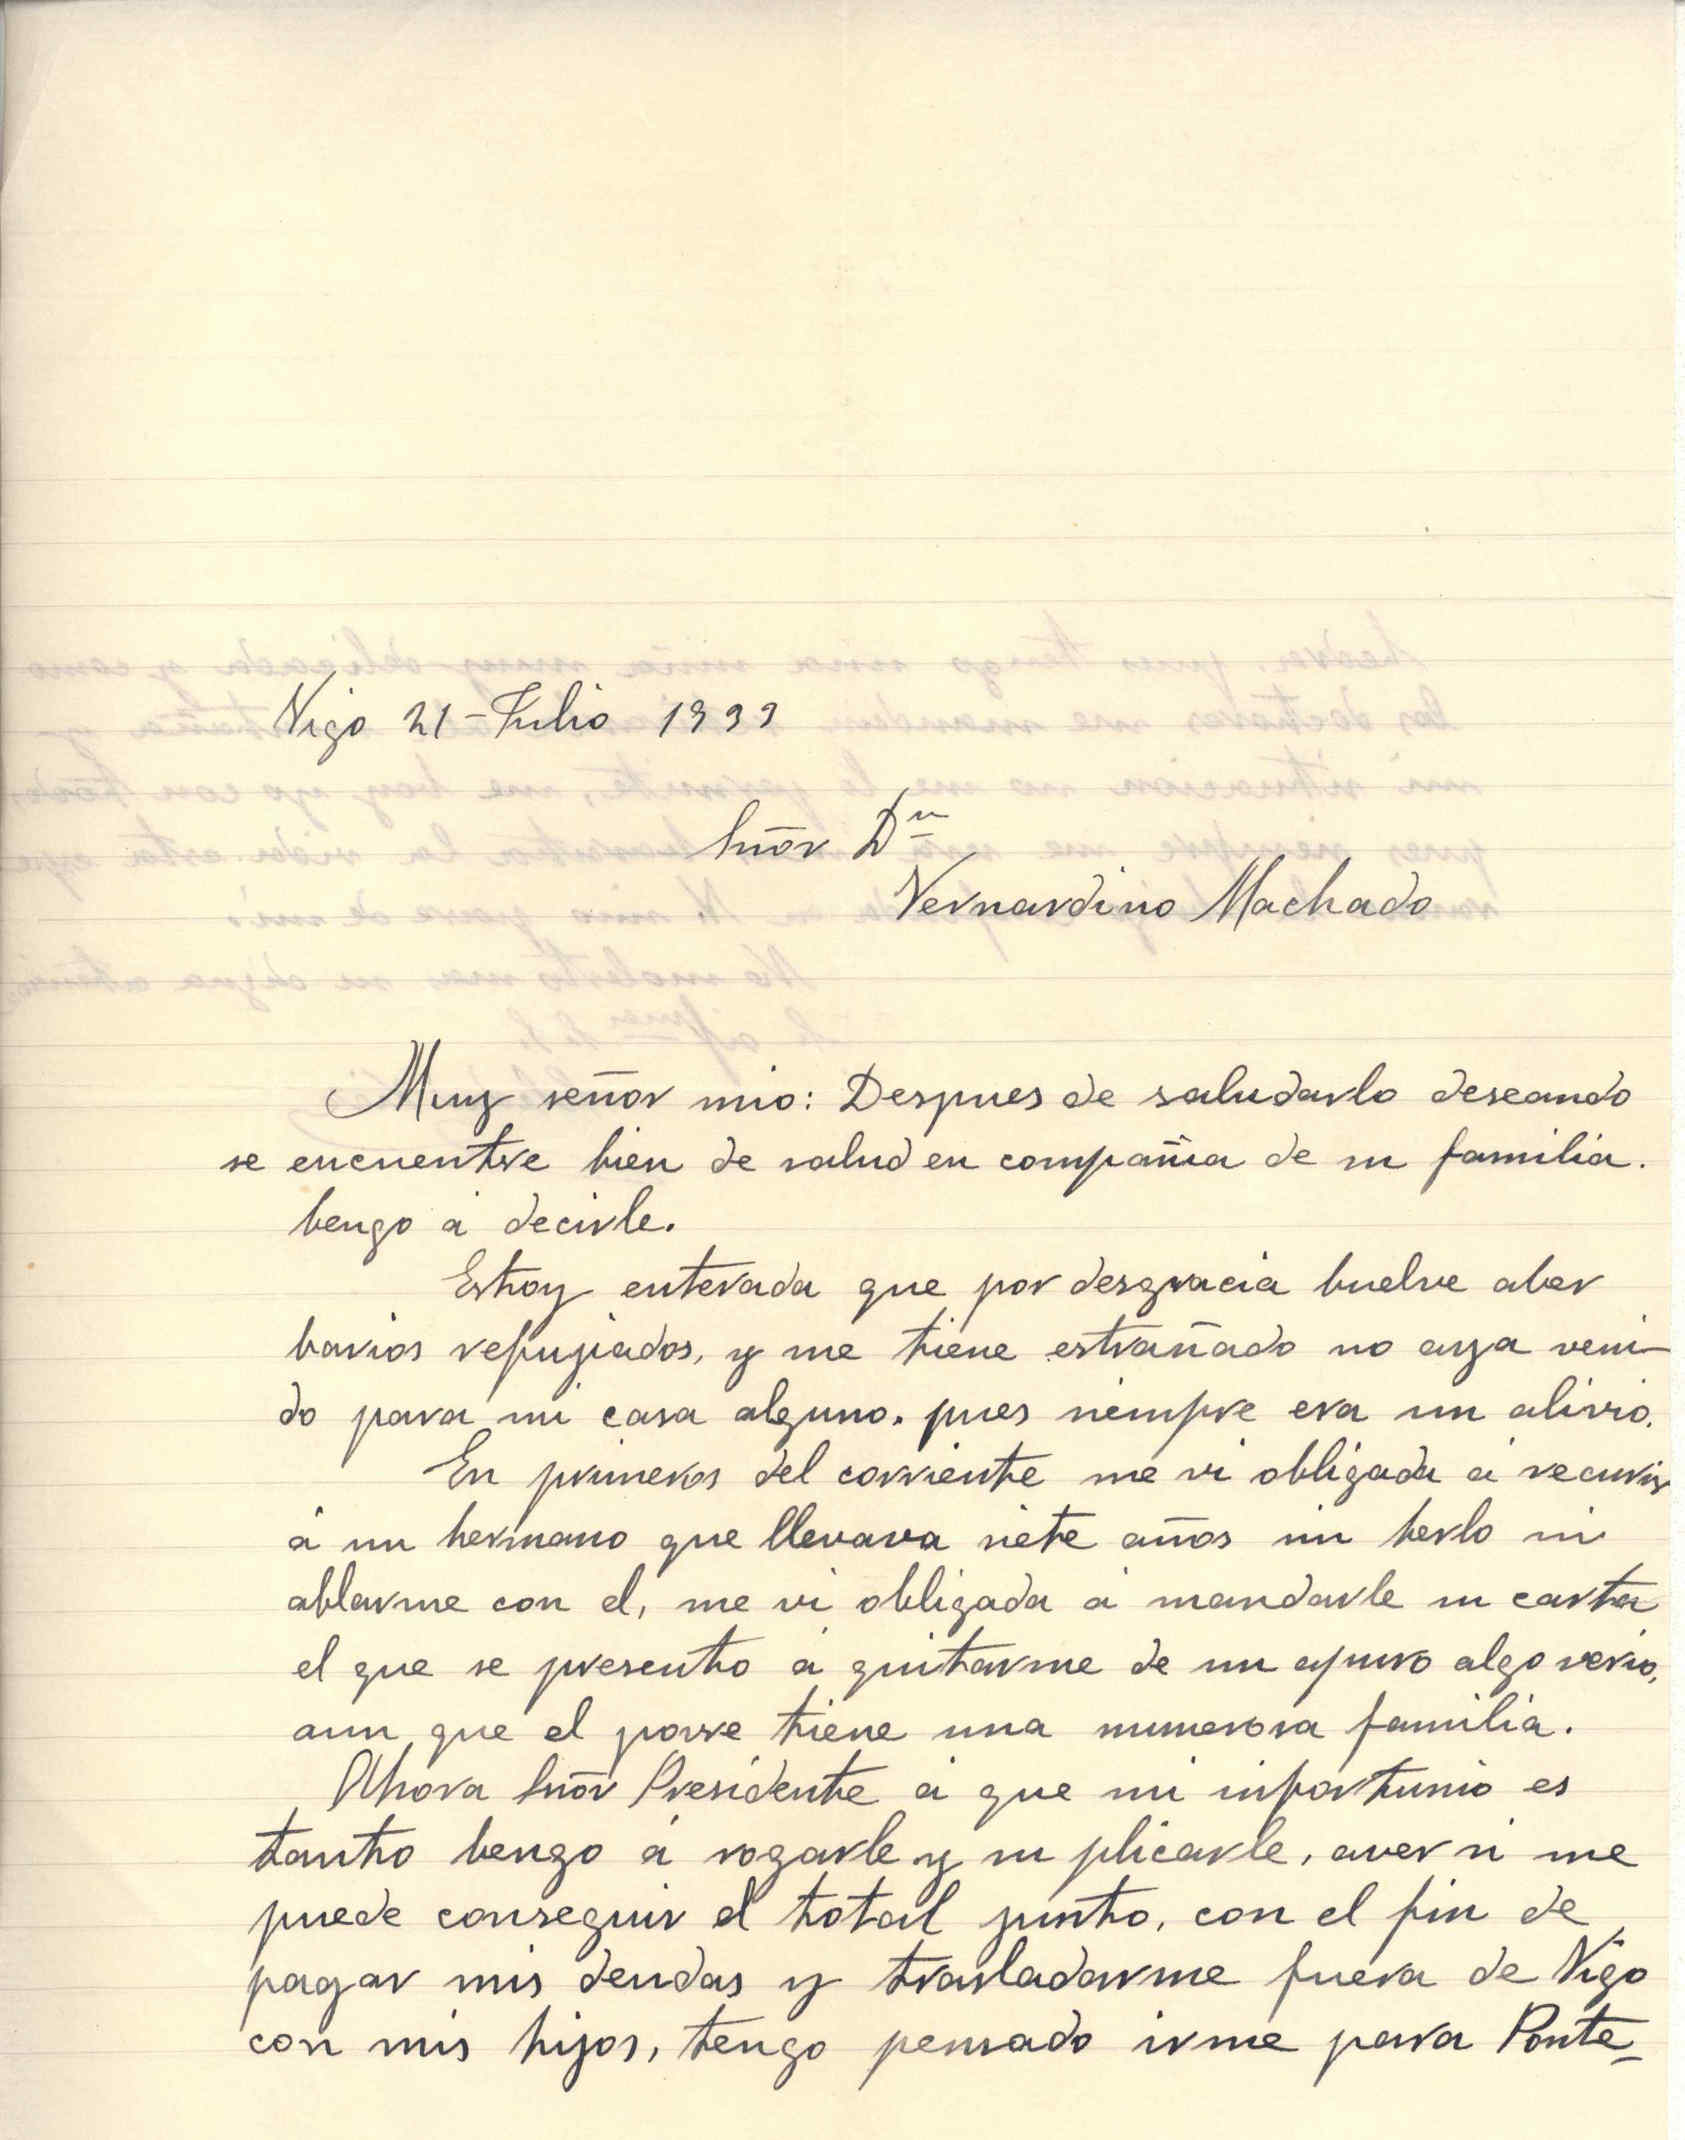 Vigo 21-Julio 1933
Sñor Dn
Vernardino Machado
Muy señor mio: Despues de saludarlo deseando
se encuentre bien de salud en compañia de su familia.
bengo á decirle.
Estoy enterada que por desgracia buelve aber
barios refujiados, y me tiene estrañado no aya veni-
do para mi casa alguno. pues siempre era un alivio.
En primeros del corriente me vi obligada á recurir
á un hermano que llevava siete años sin berlo ni
ablarme con el, me vi obligada á mandarle su carta
el que se presento á quitarme de un apuro algo serio,
aun que el povre tiene una numerosa familia.
Ahora Sñor Presidente á que mi infortunio es
tanto bengo á rogarle y su plicarle, aver si me
puede conseguir el total junto, con el fin de
pagar mis deudas y trasladarme fuera de Vigo
con mis hijos, tengo pensado irme para Ponte-